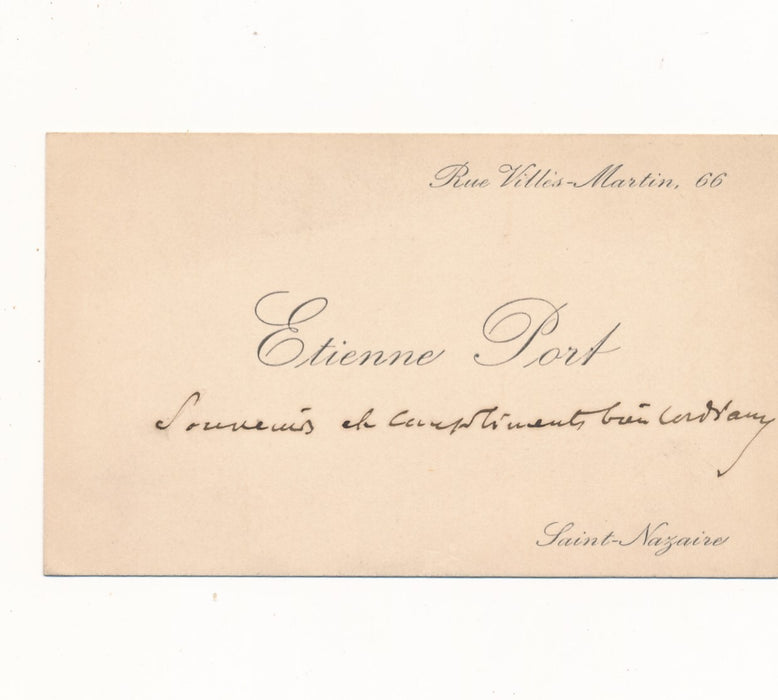 Rue Villès-Martin, 66
Etienne Port
Souvenirs et compliments bien cordiaux
Saint-Nazaire